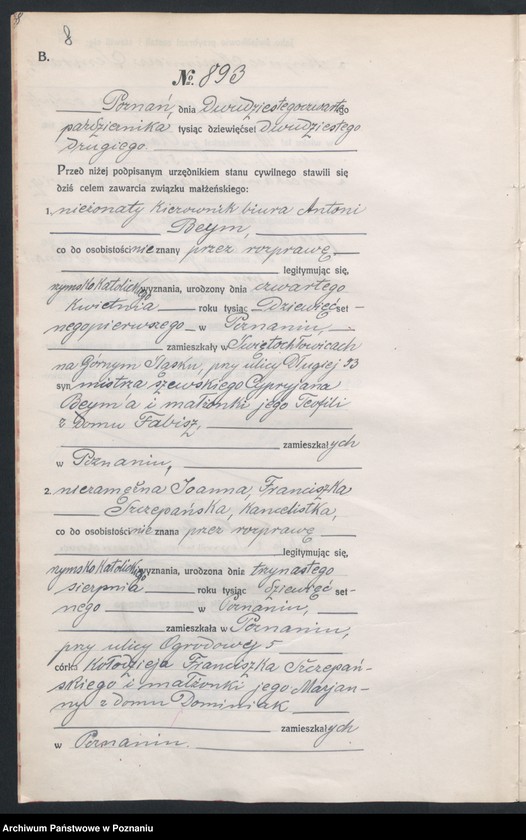 8
B.
№ 893
Poznań, dnia dwudziestegoczwartego
października tysiąc dziewięćset dwudziestego
drugiego.
Przed niżej podpisanym urzędnikiem stanu cywilnego stawili się
dziś celem zawarcia związku małżeńskiego:
1. nieżonaty kierownik biura Antoni
Beym,
co do osobistości nie znany przez rozprawę
legitymując się,
rzymsko katolickiego wyznania, urodzony dnia czwartego
kwietnia roku tysiąc dziewięćset-
negopierwszego w Poznaniu,
zamieszkały w Świętochłowicach
na Górnym Śląsku, przy ulicy Długiej 53
syn mistrza szewskiego Cypryjana
Beym'a i małżonki jego Teofili
z domu Fabisz,
zamieszkałych
w Poznaniu,
2. niezamężna Joanna, Franciszka
Szczepańska, kancelistka,
co do osobistości nie znana przez rozprawę
legitymując się,
rzymsko katolickiego wyznania, urodzona dnia trzynastego
sierpnia roku tysiąc dziewięć set-
nego w Poznaniu,
zamieszkała w Poznaniu,
przy ulicy Ogrodowej 5
córka kołodzieja Franciszka Szczepań-
skiego i małżonki jego Marjan-
ny z domu Dominiak
zamieszkałych
w Poznaniu.
Archiwum Państwowe w Poznaniu